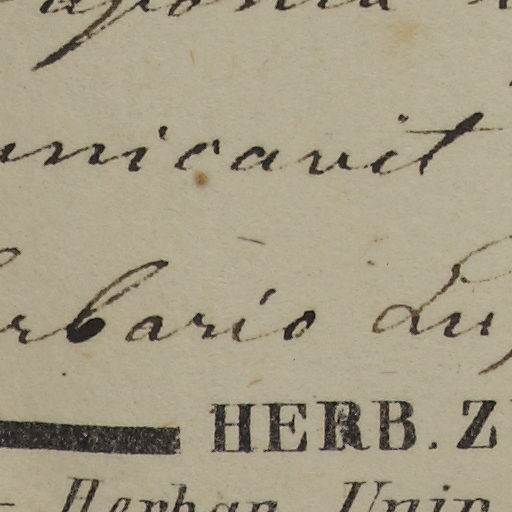 unicavit
rbario Lu
HERB. Z
Herban. Univ.